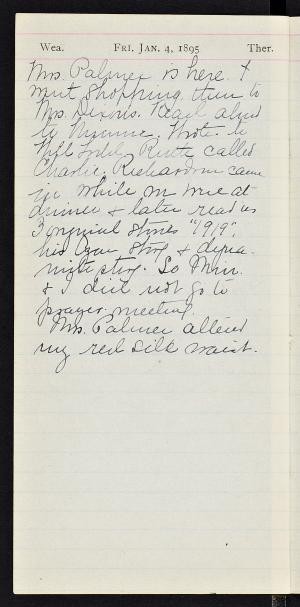 Wea. FRI. JAN. 4, 1895 Ther.
Mrs. Palmer is here. I
went shopping, then to
Mrs. Dixons. Read aloud
to Minnie. Wrote to
Will Ruth called
Charlie Richardson came
in while we were at
dinner & later read us
3 original stories "1919",
his Czar story & dyna-
mite story. So Min.
& I did not go to
prayer meeting.
Mrs. Palmer altered
my red silk waist.